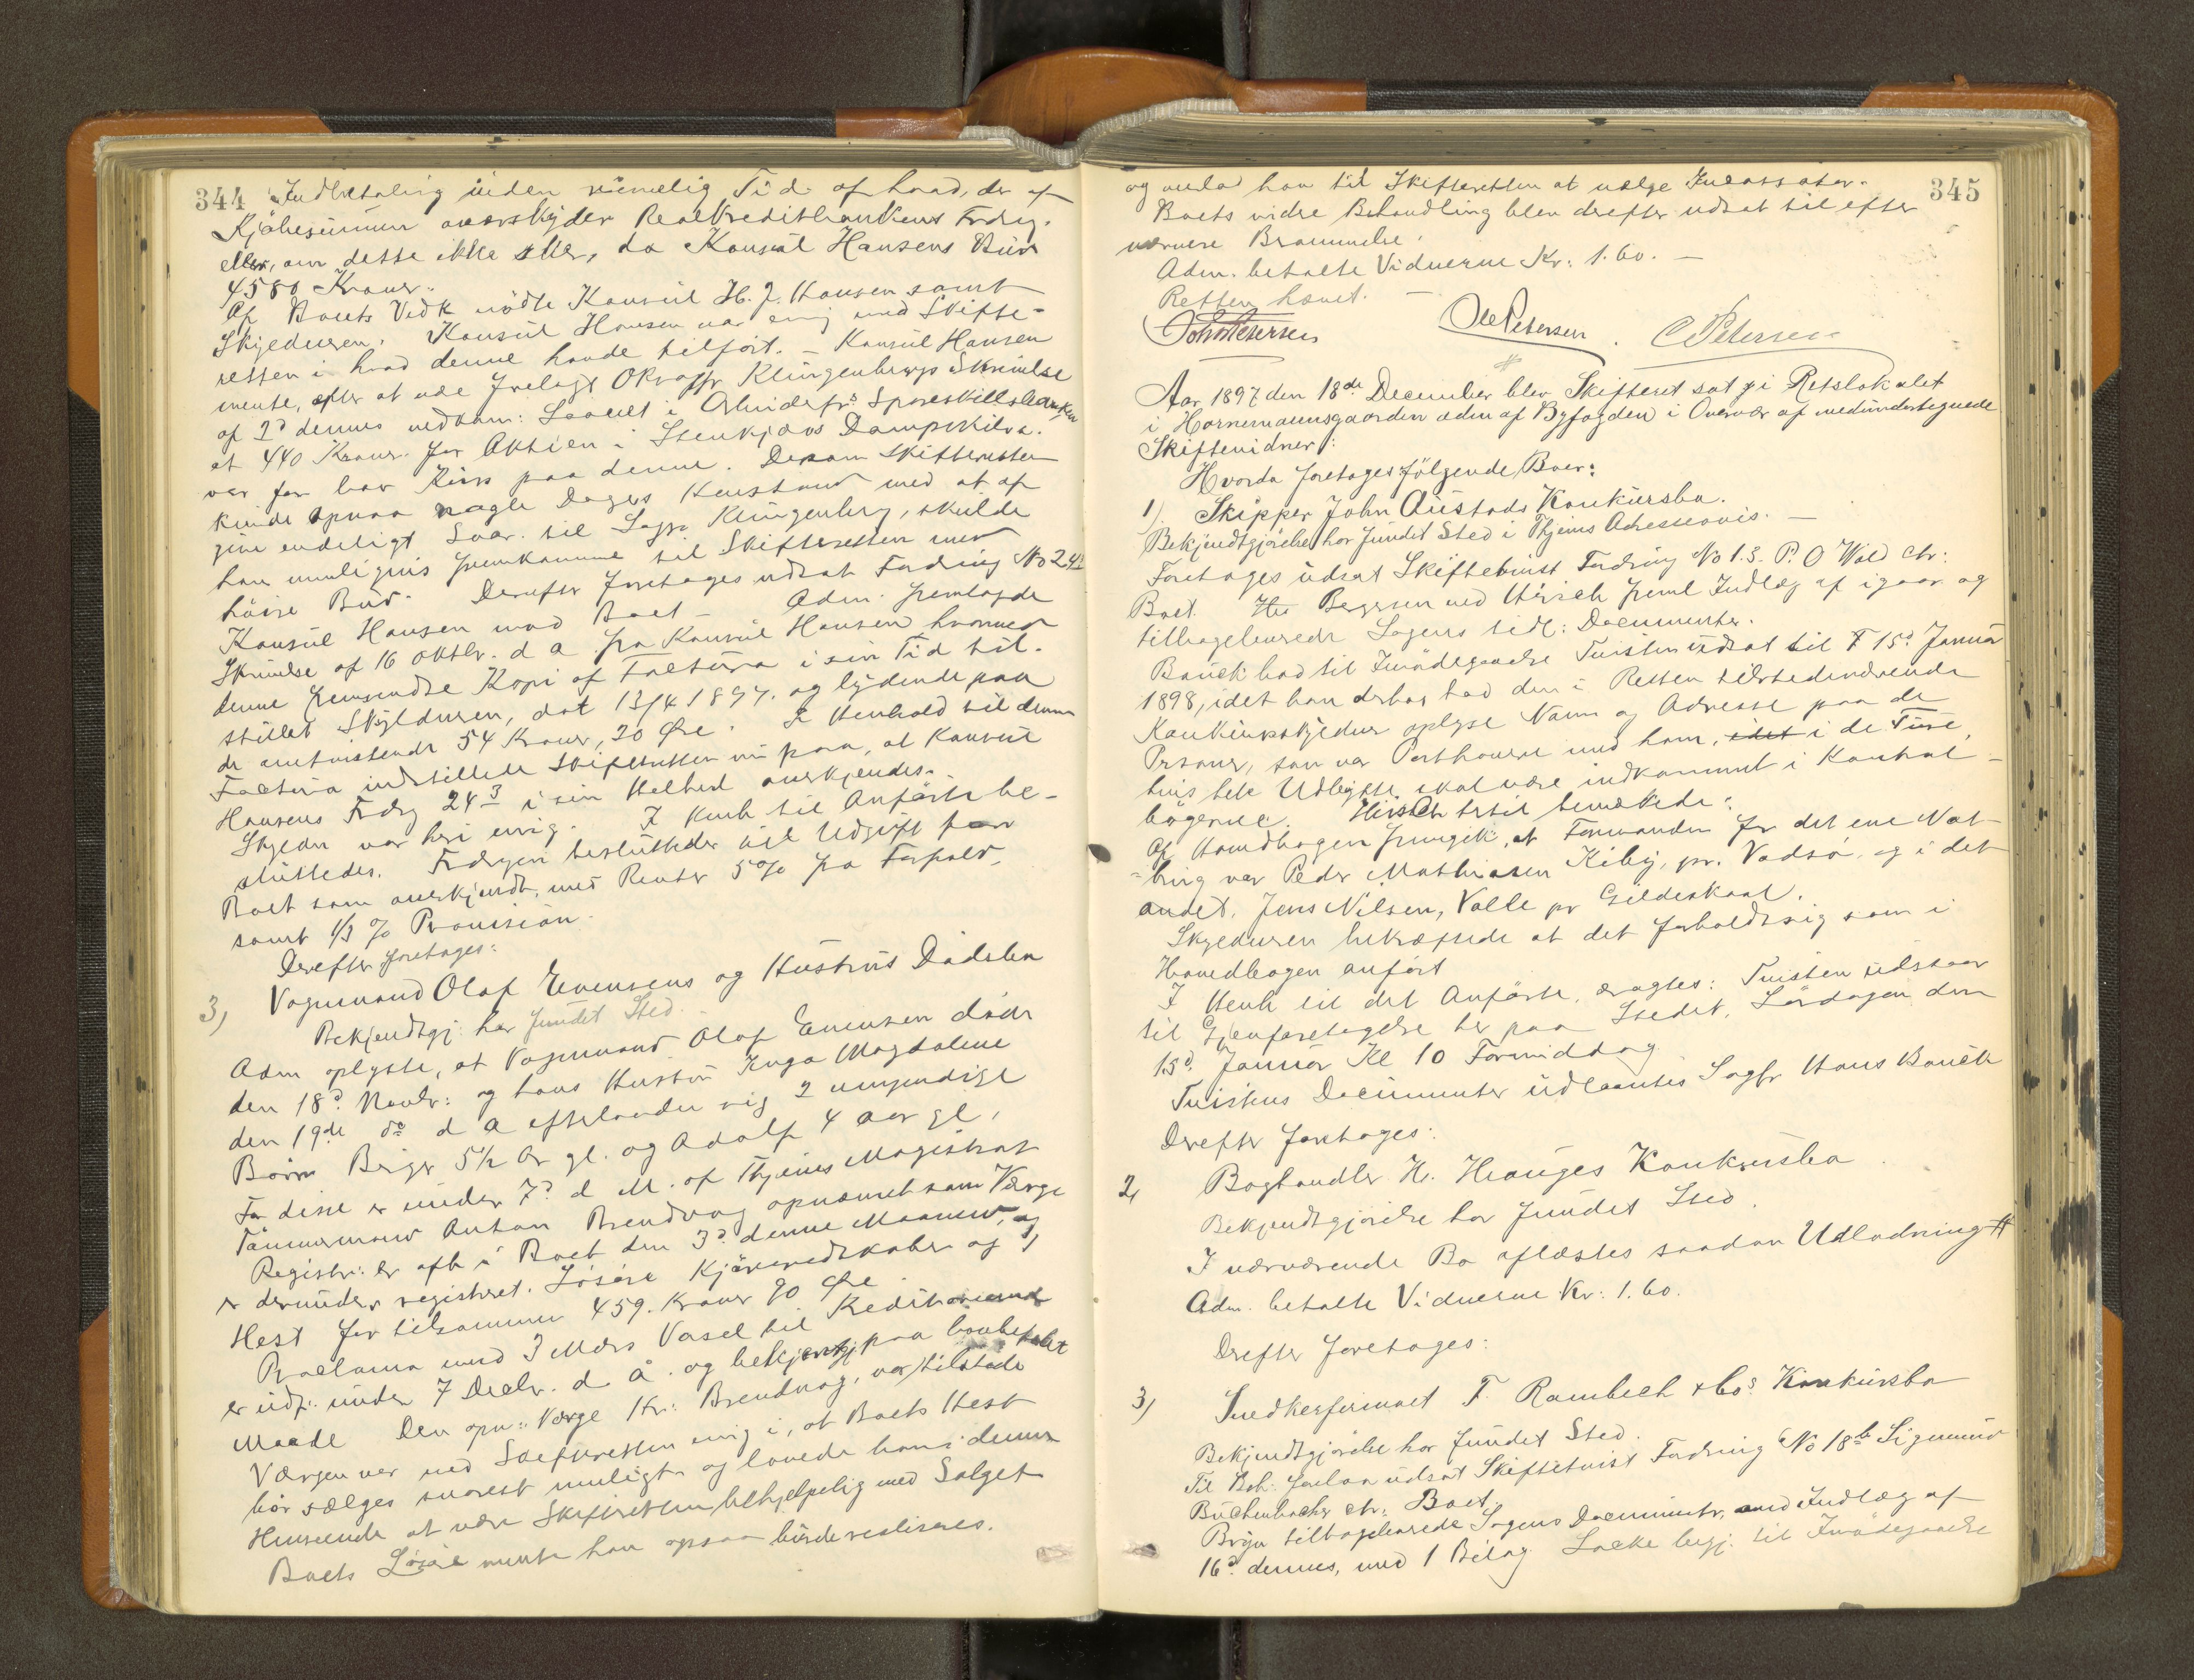 344
Indbetaling inden rimelig Tid af hvad, der af
Kjøbesummen overskyder Realkreditbankens Fordrg.
eller, om dette ikke skeer, da Konsul Hansens Bud
4580 Kroner.
Af Boets Vedk mødte Konsul H. J. Hansen samt
Skyldneren. Konsul Hansen var enig med Skifte-
retten i hvad denne havde tilført. – Konsul Hansen
mente, efter at være forelagt Klingenbergs Skrivelse
af 2d dennes vedkom: Laanet i Arbeiderfs Spareskillsbanken
at 440 Kroner for Aktien i Stenkjærs Dampskibs.
var for lav Kurs paa denne. Dersom Skifteretten
kunde opnaa nogle Dages Henstand med at af
give endeligt Svar til Sagfr Klingenberg, skulde
han muligvis fremkomme til Skifteretten med
høire Bud. Derefter foretages udsat Fordring No 24 3
Konsul Hansen mod Boet – Adm. fremlagde
Skrivelse af 16 Oktbr. d a fra Konsul Hansen hvormed
denne fremsendte Kopi af Factura i sin Tid til-
stillet Skyldneren, dat 13/4 1897. og lydende paa
de omtvistende 54 Kroner, 20 Øre. I Henhold til denne
Factura indstillede Skifteretten nu paa, at Konsul
Hansens Fordrg 24 3 i sin Helhed anerkjendes.
Skylder var heri enig. I Henh til Anførte be-
sluttedes. Fordrgen besluttedes til Udgift for
Boet som anerkjendt, med Renter 5% fra Forfald,
samt 1/3 % Provision.
Derefter foretages:
3) Vognmand Olaf Evensens og Hustrus Dødsbo
Bekjendtgj: har fundet Sted.
Adm oplyste, at Vognmand Olaf Evensen døde
den 18d Novbr: og hans Hustru Inga Magdalene
den 19de do d a efterlader sig 2 umyndige
Børn Birger 5½ Ar gl. og Adolf 4 aar gl.
For disse er under 7d d M. af Thjems Magistrat
Tømmermand Anton Brendvog opnævnt som Værge
Registr: er afh i Boet den 3d denne Maaned, og
er derunder registreret. Løsøre Kjøreredskaber og 1
Hest for tilsammen 459. Kroner 70 Øre
Proclama med 3 Mdrs Varsel til Kreditorerne
er udf: under 7 Decbr. d. å. og bekjentgj paa lovbefalet
Maade Den opn: Værge Hr: Brendvog, var tilstede
Værgen var med Skifteretten enig i, at Boets Hest
bør sælges snarest muligt og lovede han i denne
Henseende at være Skifteretten behjelpelig med Salget
Boets Løsøre mente han ogsaa burde realiseres.
345
og overlod han til Skifteretten at vælge Incassator.
Boets vidre Behandling blev derefter udsat til efter
nærmere Berammelse.
Adm. betalte Vidnerne Kr: 1.60. –
Retten hævet. –
John Petersen Ole Petersen . C Petersen
Aar 1897 den 18de December blev Skifteret sat i Retslokalet
i Hornemannsgaarden adm af Byfogden i Overvær af medundertegnede
Skiftevidner:
Hvorda foretages følgende Boer:
1) Skipper John Austads Konkursbo.
Bekjendtgjørelse har fundet Sted i Thjems Adresseavis. –
Foretages udsat Skiftetvist Fordring No 1.3. P. O Wold ctr:
Boet. Hr Bergersen ved Hirsch freml Indlæg af igaar og
tilbageleverede Sagens tidl: Documenter.
Bauck bad til Imødegaaelse Tvisten udsat til 15d Januar
1898, idet han derhos bad den i Retten tilstedeværende
Konkursskylder oplyse Navn og Adresse paa de
Personer, som var Parthavere med ham, idet i de Ture,
hvis hele Udbytte skal være indkommet i Kontra-
bøgerne. Hirsch hertil bemærkede:
Af Hovedbogen fremgik, at Formanden for det ene Not
brug var Peder Mathiasen Kiby, pr. Vadsø, og i det
andet, Jens Nilsen, Valle pr Gildeskaal.
Skylderen bekræftede at det forholdt sig som i
Hovedbogen anført
I Henh til det Anførte, eragtes: Tvisten udstaar
til Gjenforetagelse her paa Stedet, Lørdagen den
15d. Januar Kl 10 Formiddag
Tvistens Documenter udlaantes Sagfr Hans Bauck
Derefter foretages:
2, Boghandler H. Hauges Konkursbo.
Bekjendtgjørelse har fundet Sted.
I nærværende Bo oplæstes saadan Udlodning #
Adm. betalte Vidnerne Kr: 1.60.
Derefter foretages:
3) Snedkerfirmaet F. Rambech & Cos Konkursbo
Bekjendtgjørelse har fundet Sted.
Til Beh: forelaa udsat Skiftetvist Fordring No 18 b Sigmund
Buchenbacher ctr: Boet.
Bryn tilbageleverede Sagens Documenter, med Indlæg af
16d dennes, med 1 Bilag Lacke begj: til Imødegaaelse